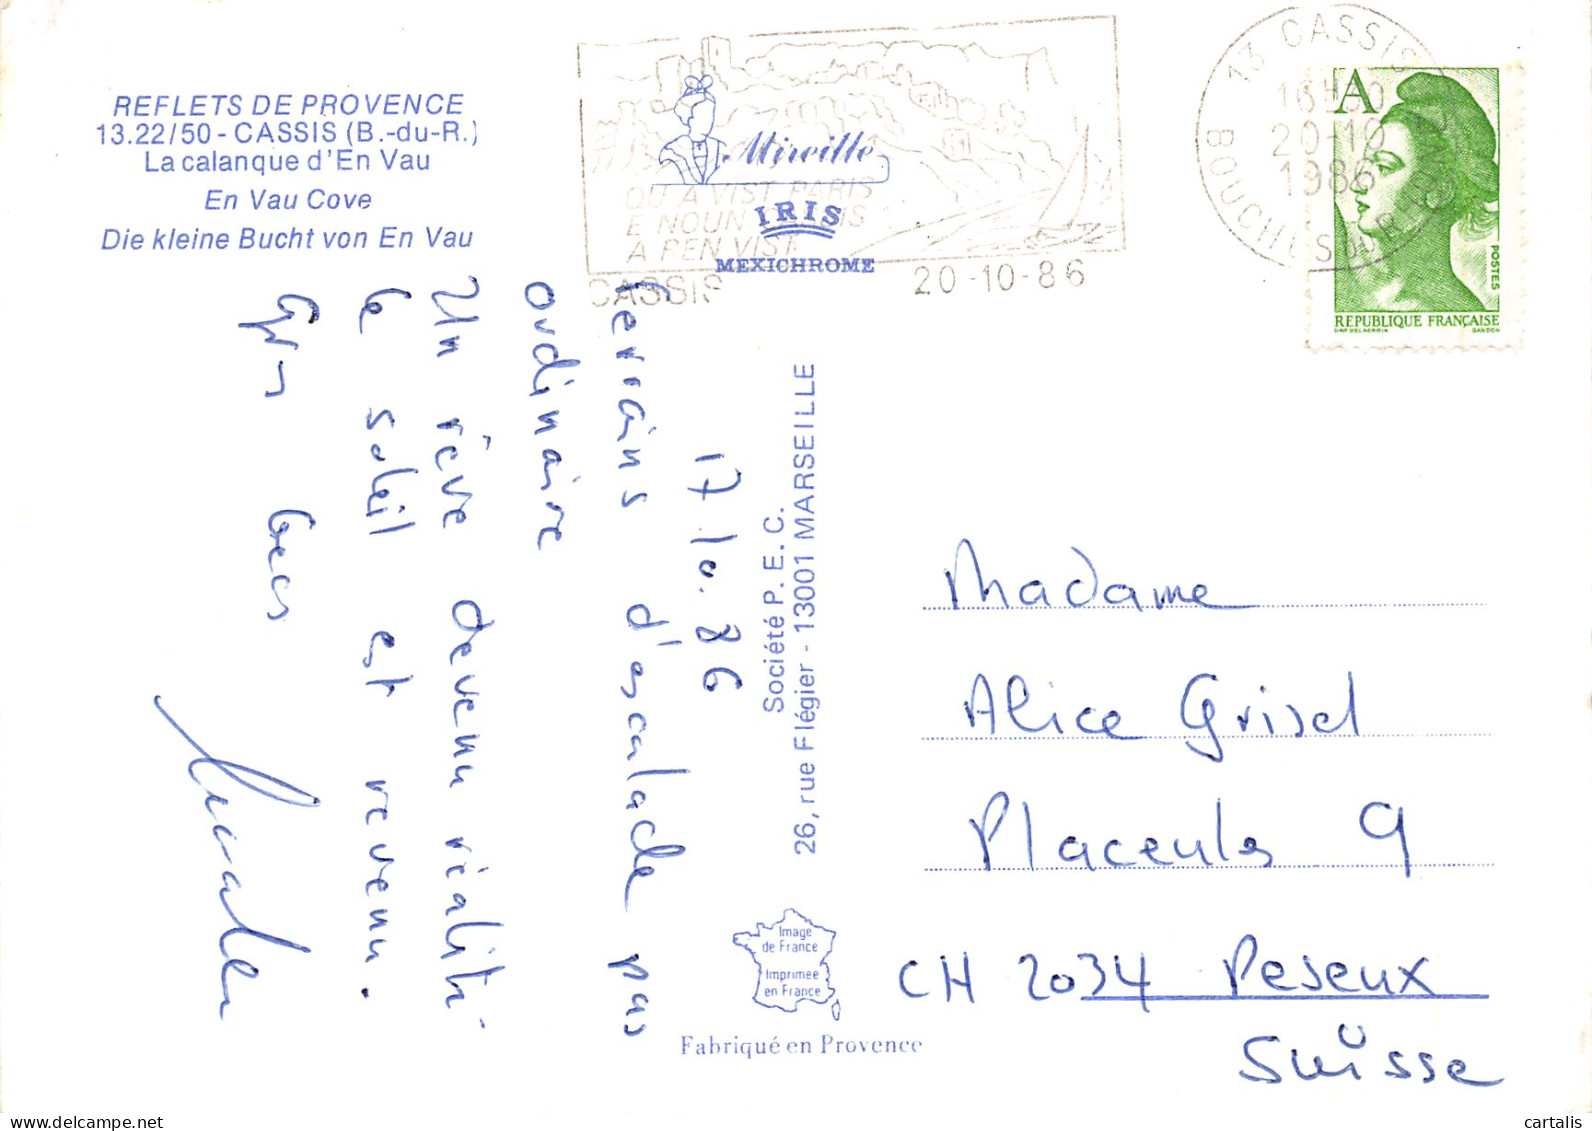 REFLETS DE PROVENCE
13.22/50 - CASSIS (B.-du-R.)
La calanque d'En Vau
En Vau Cove
Die kleine Bucht von En Vau
Mireille
IRIS
MEXICHROME
QU A VIST PARIS
E NOUN CASSIS
A REN VIST
CASSIS
20-10-86
13 CASSIS
16H30
20-10
1986
BOUCHES DU RHONE
A
POSTES
REPUBLIQUE FRANÇAISE
DAP DELACROIX
GANDON
17.10.86
Terrains d'escalade pas
ordinaire
Un rêve devenu réalité
le soleil est revenu.
Gros becs
Société P.E.C.
26, rue Flégier - 13001 MARSEILLE
Image
de France
Imprimee
en France
Fabriqué en Provence
Madame
Alice Grisel
Placeules 9
CH 2034 Peseux
Suisse
cartalis